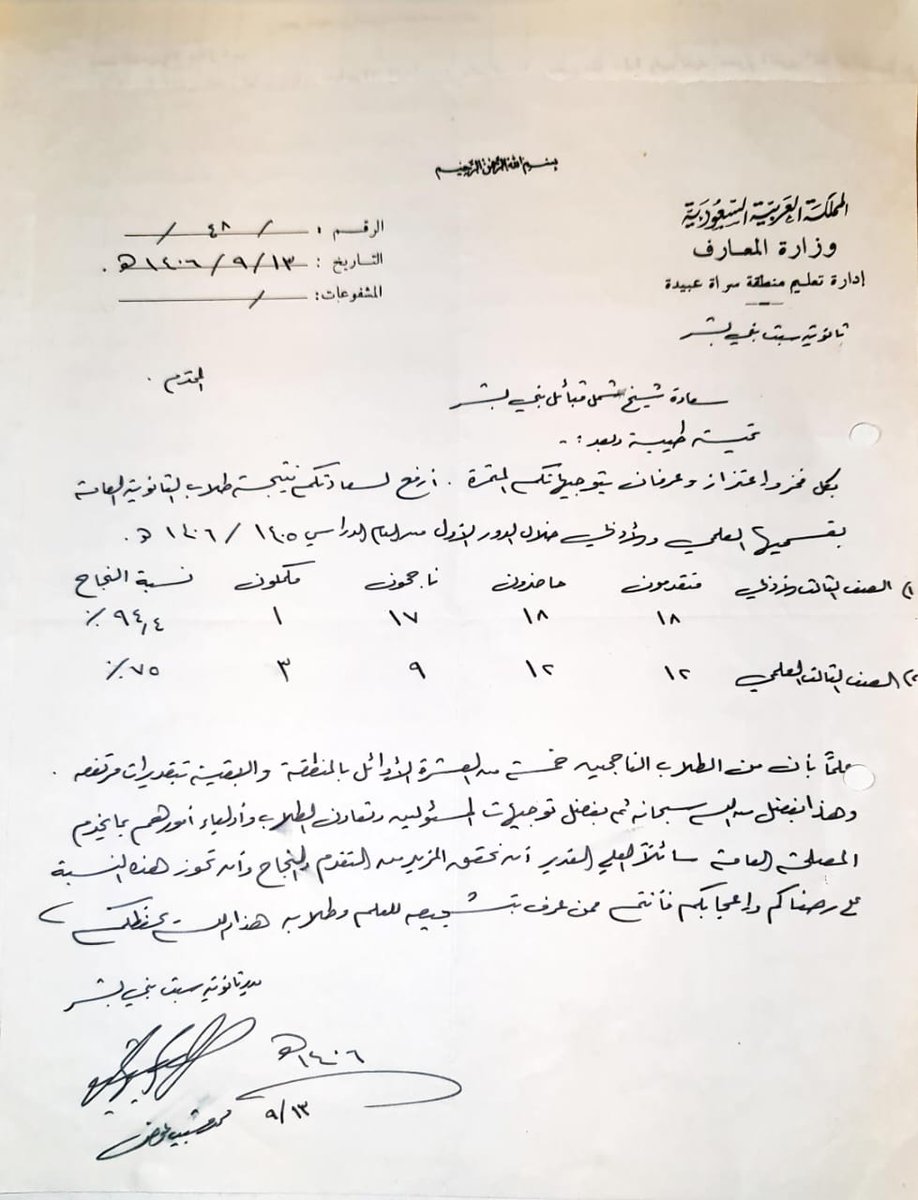 بسم الله الرحمن الرحيم
المملكة العربية السعودية
وزارة المعارف
إدارة تعليم منطقة سراة عبيدة
ثانوية سبت بني بشر
الرقم : / ٤٨ /
التاريخ : ١٣ / ٩ / ١٤٠٦ هـ .
المشفوعات : /
سعادة شيخ شمل قبائل بني بشر المحترم .
تحية طيبة وبعد : -
بكل فخر واعتزاز وعرفان بتوجيهاتكم المثمرة . أرفع لسعادتكم نتيجة طلاب الثانوية العامة
بقسميها العلمي والأدبي خلال الدور الأول من العام الدراسي ١٤٠٥ / ١٤٠٦ هـ .
متقدمون حاضرون ناجحون مكملون نسبة النجاح
١) الصف الثالث الأدبي ١٨ ١٨ ١٧ ١ ٩٤,٤ ٪
٢) الصف الثالث العلمي ١٢ ١٢ ٩ ٣ ٧٥ ٪
علماً بأن من الطلاب الناجحين خمسة من العشرة الأوائل بالمنطقة والبقية بتقديرات مرتفعه .
وهذا بفضل من الله سبحانه ثم بفضل توجيهات المسئولين وتعاون الطلاب وأولياء أمورهم بما يخدم
المصلحة العامة سائلاً العلي القدير أن نحقق المزيد من التقدم والنجاح وأن تحوز هذه النسبة
على رضاكم وإعجابكم فأنتم ممن عرف بتشجيعه للعلم وطلابه هذا والله يحفظكم
مدير ثانوية سبت بني بشر
١٤٠٦ هـ
٩/١٣
محمد